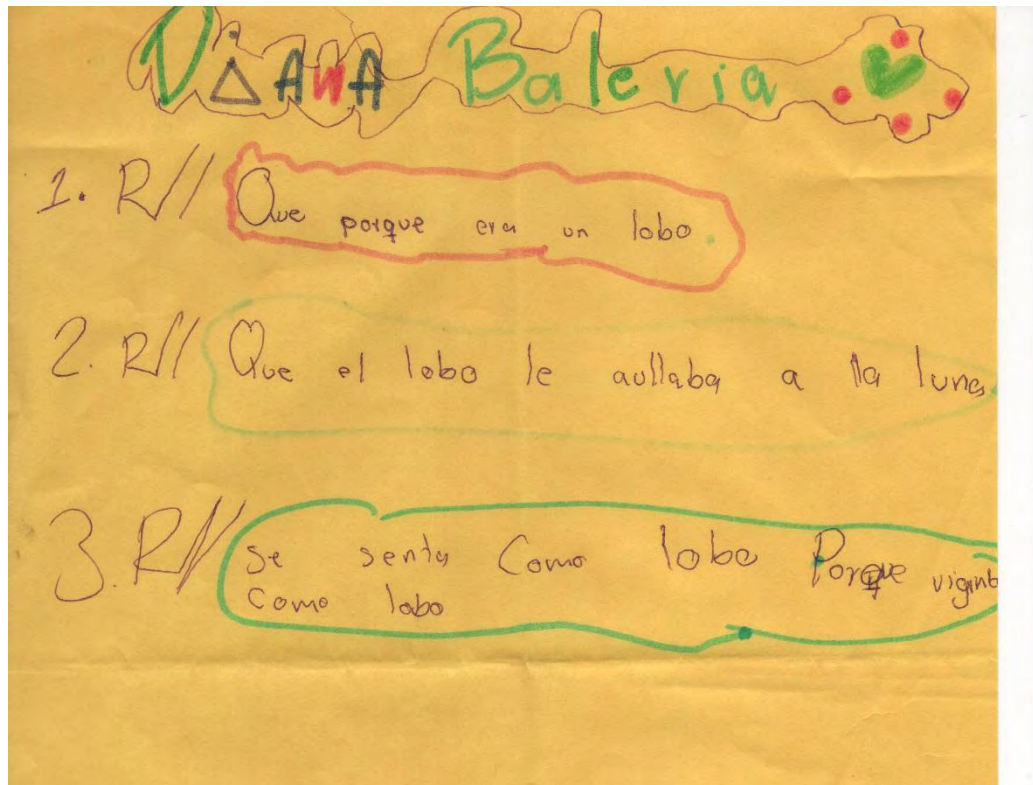 DiANA Baleria
1. R// Que porque era un lobo.
2. R// Que el lobo le aullaba a la luna
3. R// se sentia Como lobo Porque
Como lobo